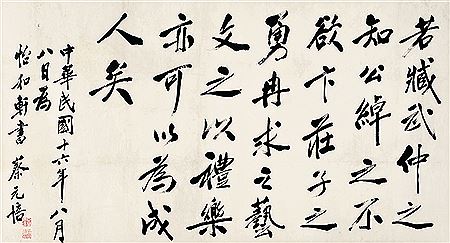 若臧武仲之
知公綽之不
欲卞莊子之
勇冉求之藝
文之以禮樂
亦可以為成
人矣
中華民國十六年八月
八日為
怡和軒書 蔡元培